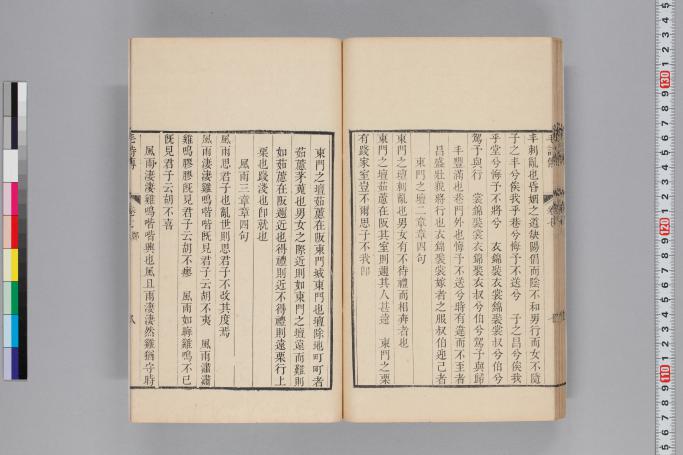 丰刺亂也昏姻之道缺陽倡而陰不和男行而女不隨
子之丰兮俟我乎巷兮悔予不送兮　子之昌兮俟我
乎堂兮悔予不將兮　衣錦褧衣裳錦褧裳叔兮伯兮
駕予與行　裳錦褧裳衣錦褧衣叔兮伯兮駕予與歸
丰豐滿也巷門外也悔予不送兮時有違而不至者
昌盛壯貌將行也衣錦褧裳嫁者之服叔伯迎己者
東門之墠二章章四句
東門之墠刺亂也男女有不待禮而相奔者也
東門之墠茹藘在阪其室則邇其人甚遠　東門之栗
有踐家室豈不爾思子不我即
東門之墠茹藘在阪東門城東門也墠除地町町者
茹藘茅蒐也男女之際近則如東門之墠遠而難則
如茹藘在阪邇近也得禮則近不得禮則遠栗行上
栗也踐淺也即就也
風雨三章章四句
風雨思君子也亂世則思君子不改其度焉
風雨淒淒雞鳴喈喈既見君子云胡不夷　風雨瀟瀟
雞鳴膠膠既見君子云胡不瘳　風雨如晦雞鳴不已
既見君子云胡不喜
風雨淒淒雞鳴喈喈興也風且雨淒淒然雞猶守時
毛詩傳
八